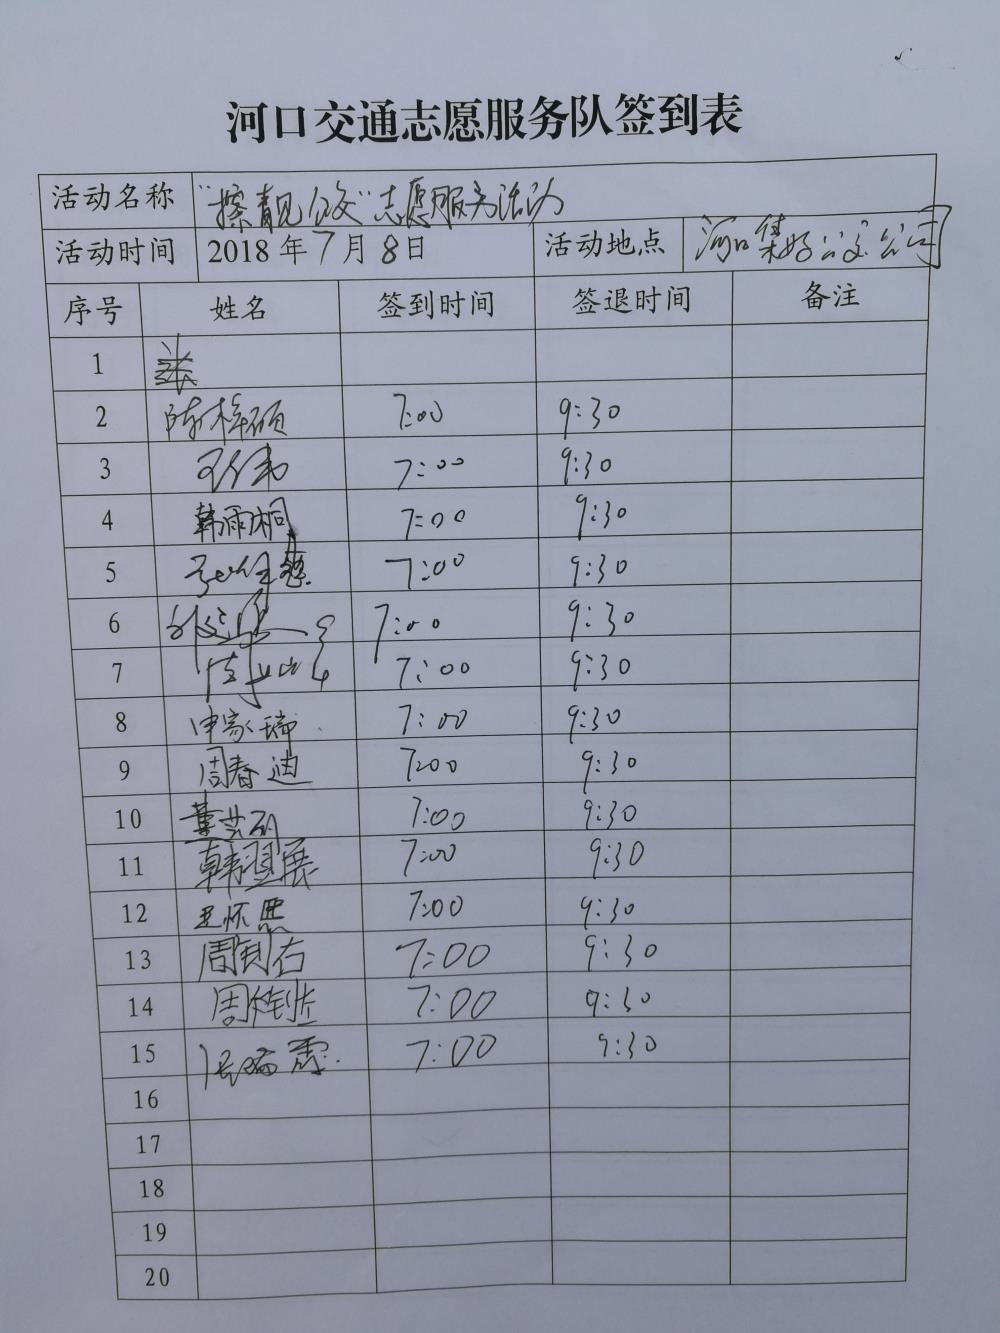 河口交通志愿服务队签到表
活动名称 "擦靓公交"志愿服务活动
活动时间 2018年7月8日 活动地点 河口集好公交公司
序号 姓名 签到时间 签退时间 备注
1
2 陈梓硕 7:00 9:30
3 7:00 9:30
4 韩雨桐 7:00 9:30
5 7:00 9:30
6 7:00 9:30
7 7:00 9:30
8 申家瑞 7:00 9:30
9 周春迪 7:00 9:30
10 董芸硕 7:00 9:30
11 韩翌展 7:00 9:30
12 王怀思 7:00 9:30
13 周围右 7:00 9:30
14 7:00 9:30
15 张瑞霞 7:00 9:30
16
17
18
19
20